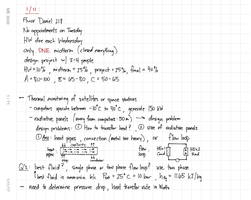 1/11:
Flour Daniel 218
No appointments on Tuesday
HW due each Wednesday
only ONE midterm (closed everything)
design project w/ 3-4 people
HW=10%, midterm=25%, project=25%, final=40%
A=80-100, B=65-80, C=50-65
- Thermal monitoring of satellites or space stations
- computers operate between -10°C to 40°C, generate 150 kW
- radiative panels (away from computers 50 m) → design problem
design problems: ① How to transfer heat? ② size of radiation panels
① Ans: heat pipes, convection (metal too heavy), or flow loop
Q's: best fluid?, single phase or two phase flow loop? use two phase
best fluid is ammonia b/c
- need to determine pressure drop, heat transfer rate in Watts